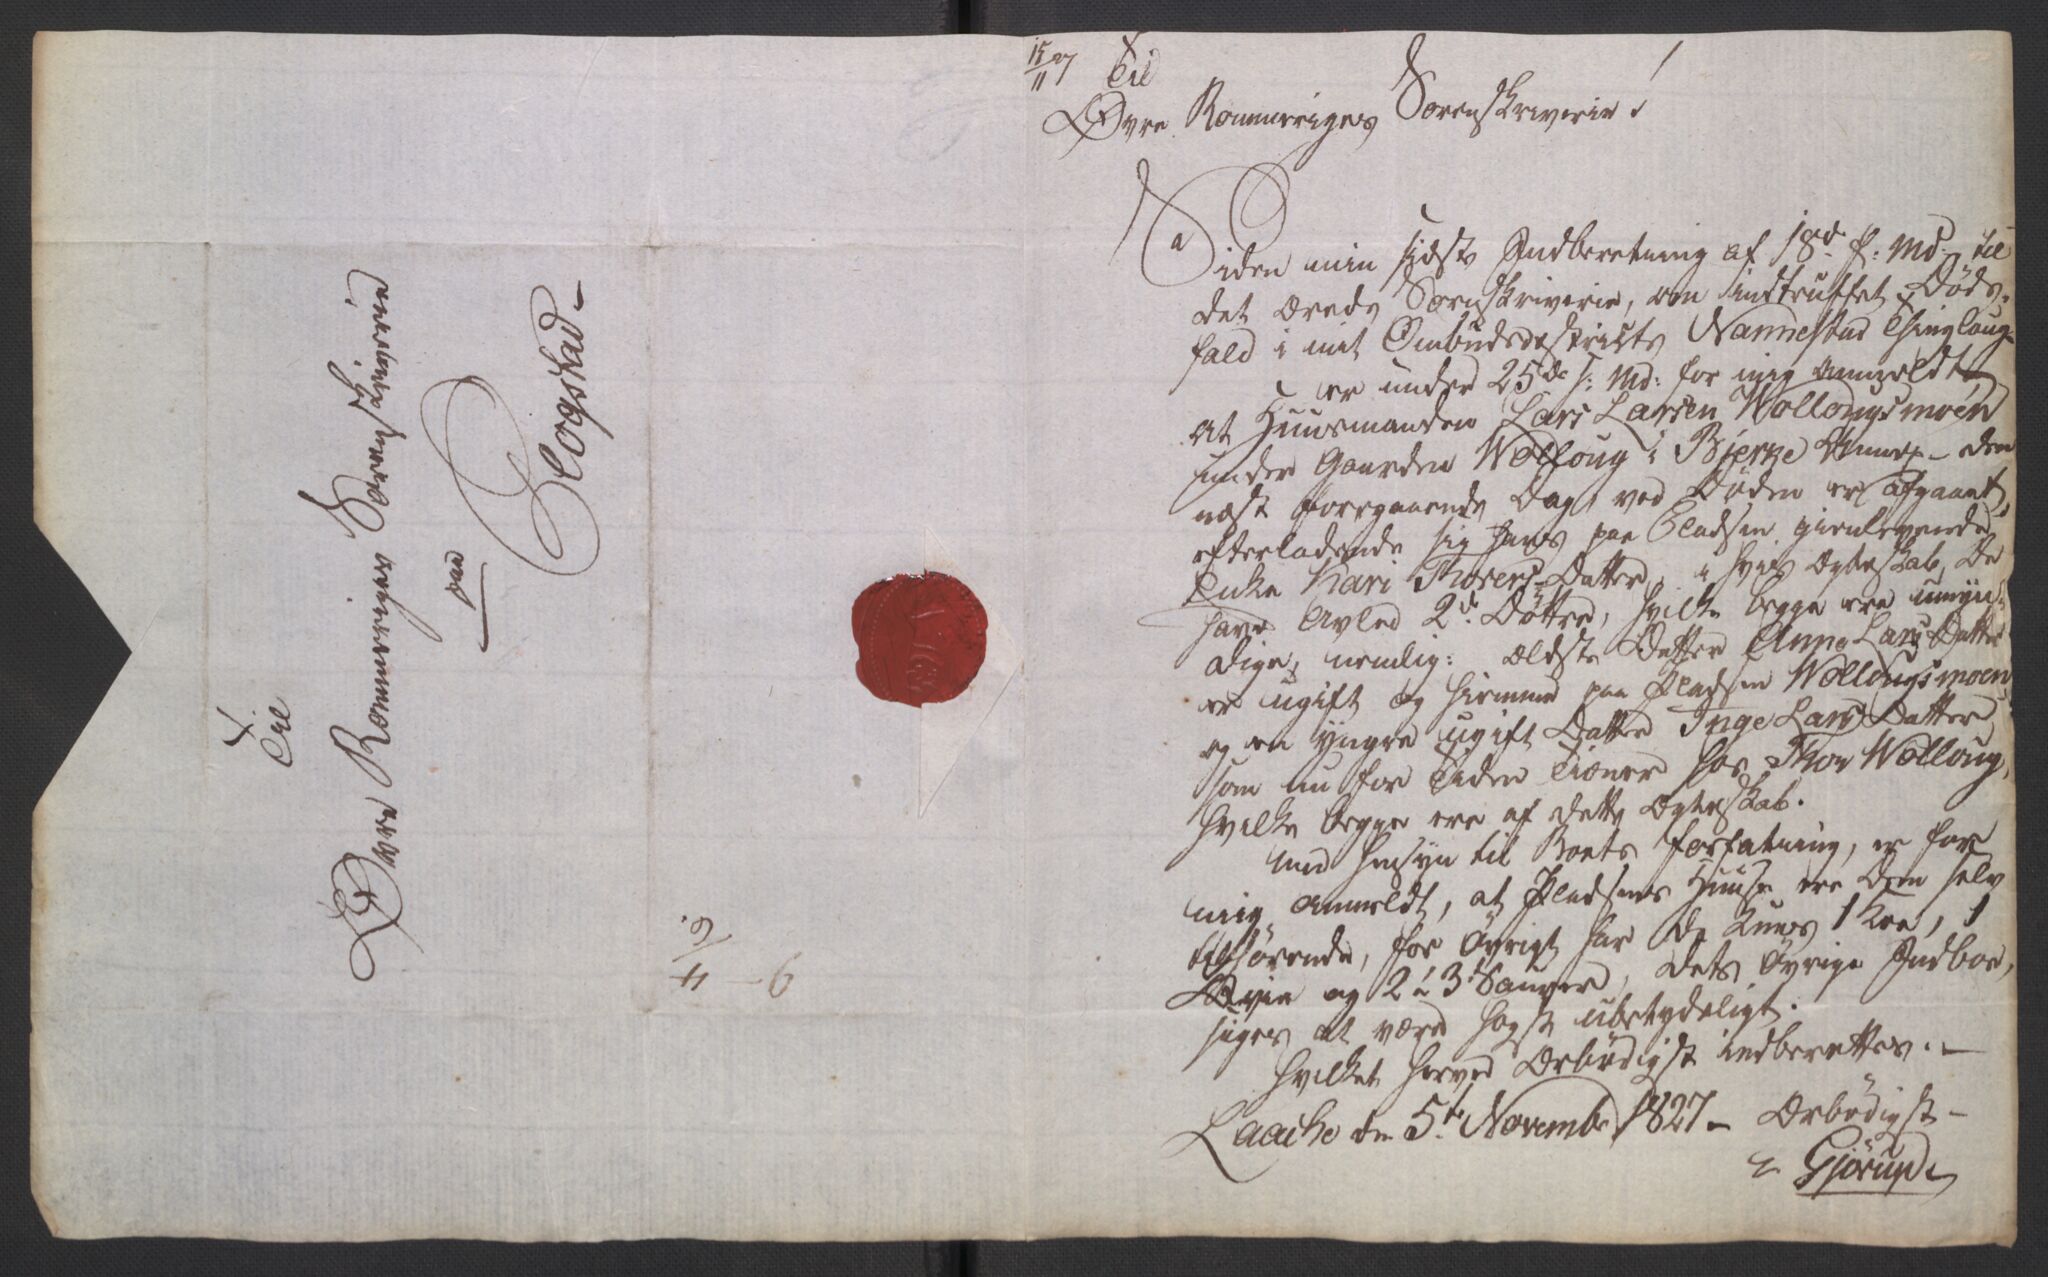 Til
Øvre Rommeriges Sorenskriverie
paa
Clogstad
6/11
15/11 27
Til
Øvre Rommeriges Sorenskriverie
Siden min sidste Indberetning af 18de f: Md: til
det ærede Sorenskriverie, om indtruffet Døds-
fald i mit Ombudsdestricts Nannestad Thinglaug
er under 25de f: Md: for mig anmeldt,
at Huusmanden Lars Larsen Wollougsmoen
under Gaarden Wolloug i Bjerge Annex den
næst foregaaende Dag ved Døden er afgaaet,
efterladende sig hans paa Pladsen gienlevende
Enke Kari Thorers Datter, i hvis Ægteskab De
have Avled 2de Døttre, hvilke begge ere umyn-
dige, nemlig: ældste Datter Anne Lars Datter
er ugift og hiemme paa Pladsen Wollougsmoen,
og en yngre ugift Datter Inge Lars Datter
som nu for Tiden Tiener hos Thor Wolloug,
hvilke begge ere af dette Ægteskab.
Med Hensyn til Boets Forfatning, er for
mig anmeldt, at Pladsens Huuse ere dem selv
tilhørende, for Øvrigt har De kuns 1 Koe, 1
Qvie og 2 à 3 Sauer, dets Øvrige Indboe,
siges at være høyst ubetydeligt.
Hvilket herved Ærbødigst indberettes.
Laache den 5te Novembr 1827
Ærbødigst
Gjørup